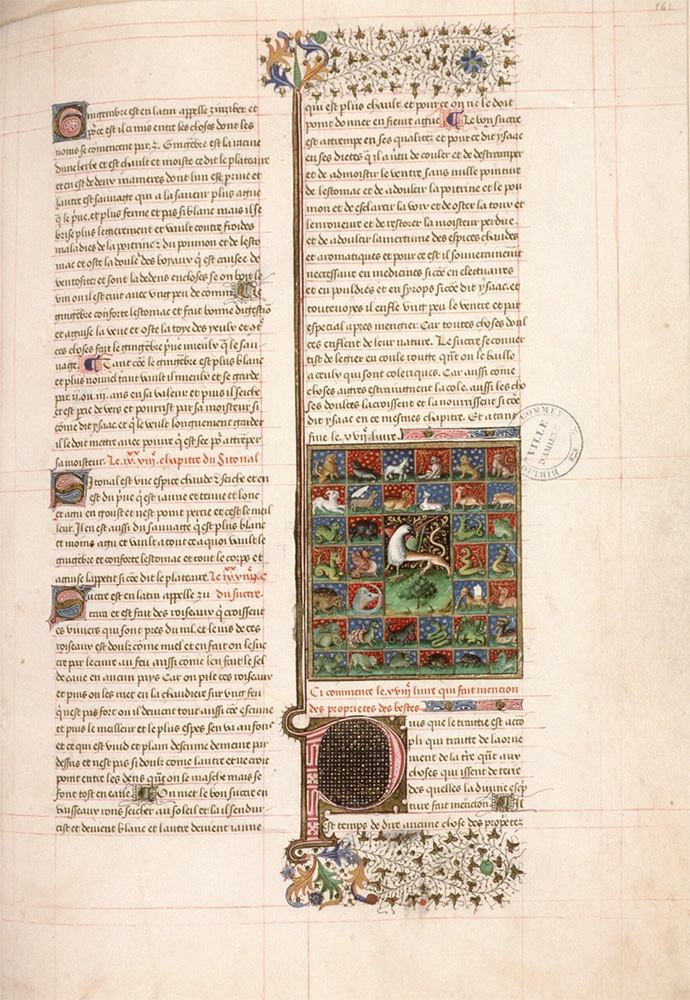 Gingembre est en latin appelle zinziber et
pce est il a mis entre les choses dont les
noms se comencent par. z. Gingebre est la racine
dune herbe et est chault et moiste ce dit le plateaire
et en est de deux manieres dont lun est prive et
lautre est sauvage qui a la saveur plus ague
q le pve. et plus ferme et pas si blanc mais il se
brise plus legierement et vault contre froides
maladies de la poitrine et du poumon et de lesto
mac et oste la doule des boyaux q est causee de
ventosite et sont la dedens encloses se on boit le
vin ou il est cuit avec ung peu de comin
gingebre conforte lestomac et fait bonne digestio
et aguise la veue et oste la toye des yeulx et
ces choses fait le gingebre pve mieulx q le sau
vage. Tant coe le gingebre est plus blanc
et plus nouvel tant vault il mieulx et se garde
par .ii. ou .iii. ans en sa valeur et puis il seiche
et est pise de vers et pourrist par sa moisteur si
come dit ysaac. et q le veult longuement garder
il le doit mettre avec poivre q est sec po attreper
sa moisteur. Le chapitre du Sitonal
Sitonal est une espice chaude et seiche et en
est du pve q est iaune et tenue et lone
et agu en goust et nest point percie et cest le meil
leur. Il en est aussi du sauvage q est plus blanc
et moins agu et vault a tout ce a quoi vault le
gingebre et conforte lestomac et tout le corps et
aguise lappetit si coe dit le plateaire. Le
Sucre est en latin appelle zu du sucre
cara et est fait des roiseaux q croissent
es viviers qui sont pres du nil. et le ius de ces
roiseaux est doulx come miel et en fait on le suc
cre par le cuire au feu aussi come len fait le sel
de leaue en aucun pays Car on pile ces roiseaux
et puis on les met en la chaudiere sur ung feu
q nest pas fort ou il devient tout aussi coe escume
et puis le meilleur et le plus espes sen va au fons
et ce qui est vuid et plain descume demeure par
dessus et nest pas si doulx come lautre et ne croit
point entre les dens qnt on le masche mais se
font tost en eaue. On met le bon sucre en
vaisseaux rons seicher au soleil et la il sendur
cist et devient blanc et lautre devient iaune
qui est plus chault. et pour ce on ne le doit
point donner en fievre ague Le bon sucre
est attrempe en ses qualitez et pour ce dit ysaac
en ses dietes q il a vtu de couler et de destremper
et de admoistir le ventre sans nulle pointure
de lestomac et de adoulcir la poitrine et le pou
mon et de esclarcir la voix et de oster la toux et
lenroueure et de restorer la moisteur perdue.
et de adoulcir lamertume des espices chaudes
et aromatiques et pour ce est il souverainement
necessaire en medicines si coe en electuaires
et en pouldres et en syrops si coe dit ysaac. et
toutevoies il enfle ung peu le ventre et par
especial apres mengier. Car toutes choses doul
ces enflent de leur nature. Le sucre se conver
tist de legier en coule rouge qnt on le baille
a ceulx qui sont coleriques. Car aussi come
choses aigres estraingnent la cole. aussi les cho
ses doulces lacroissent et la nourrissent si coe
dit ysaac en ce mesmes chapitre. Et a tant
fine le .xvij. livre
COMMUN
VILLE
D'AMIENS
BIBLIO
Ci commence le .xviij. livre qui fait mencion
des proprietes des bestes
Puis que le traittie est acco
pli qui traitte de laorne
ment de la tre qnt aux
choses qui issent de terre
des quelles la divine escp
ture fait mencion Il
est temps de dire aucune chose des propretez